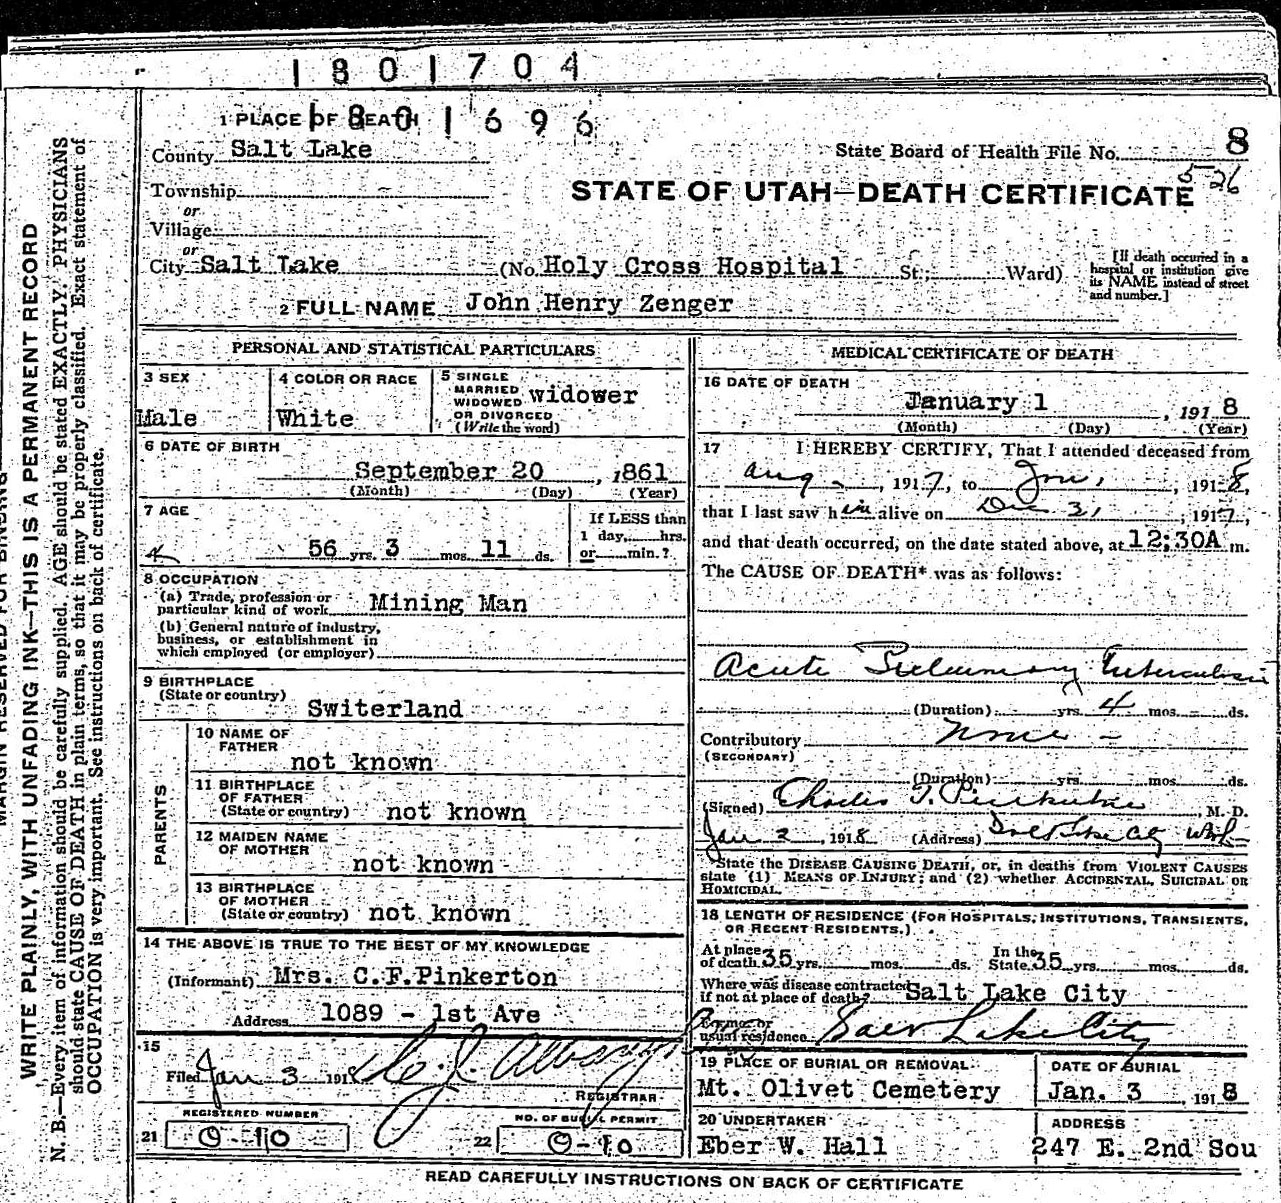 1801704
1801696
1 PLACE OF DEATH
County Salt Lake
State Board of Health File No. 8
5-26
Township
STATE OF UTAH—DEATH CERTIFICATE
or
Village
or
City Salt Lake (No. Holy Cross Hospital St.; Ward)
[If death occurred in a
hospital or institution give
its NAME instead of street
and number.]
2 FULL NAME John Henry Zenger
MARGIN RESERVED FOR BINDING
WRITE PLAINLY, WITH UNFADING INK—THIS IS A PERMANENT RECORD
N. B.—Every item of information should be carefully supplied. AGE should be stated EXACTLY. PHYSICIANS
should state CAUSE OF DEATH in plain terms, so that it may be properly classified. Exact statement of
OCCUPATION is very important. See instructions on back of certificate.
PERSONAL AND STATISTICAL PARTICULARS
3 SEX
Male
4 COLOR OR RACE
White
5 SINGLE
MARRIED
WIDOWED
OR DIVORCED
(Write the word)
widower
6 DATE OF BIRTH
September 20, 1861
(Month) (Day) (Year)
7 AGE
56 yrs. 3 mos. 11 ds.
If LESS than
1 day, hrs.
or min.?
8 OCCUPATION
(a) Trade, profession or
particular kind of work Mining Man
(b) General nature of industry,
business, or establishment in
which employed (or employer)
9 BIRTHPLACE
(State or country)
Switerland
PARENTS
10 NAME OF
FATHER
not known
11 BIRTHPLACE
OF FATHER
(State or country) not known
12 MAIDEN NAME
OF MOTHER
not known
13 BIRTHPLACE
OF MOTHER
(State or country) not known
14 THE ABOVE IS TRUE TO THE BEST OF MY KNOWLEDGE
(Informant) Mrs. C.F.Pinkerton
Address 1089 - 1st Ave
15
Filed Jan 3 1918
REGISTRAR
REGISTERED NUMBER
21 0-10
NO. OF BURIAL PERMIT
22 0-10
MEDICAL CERTIFICATE OF DEATH
16 DATE OF DEATH
January 1, 1918
(Month) (Day) (Year)
17 I HEREBY CERTIFY, That I attended deceased from
Aug -, 1917, to Jan 1, 1918,
that I last saw him alive on Dec 31, 1917,
and that death occurred, on the date stated above, at 12:30A m.
The CAUSE OF DEATH* was as follows:
Acute Pulmonary Tuberculosis
(Duration) yrs. 4 mos. ds.
Contributory None -
(SECONDARY)
(Duration) yrs. mos. ds.
(Signed) Charles F. Pinkerton, M. D.
Jan 2, 1918 (Address) Salt Lake City Utah
*State the DISEASE CAUSING DEATH, or, in deaths from VIOLENT CAUSES
state (1) MEANS OF INJURY; and (2) whether ACCIDENTAL, SUICIDAL OR
HOMICIDAL.
18 LENGTH OF RESIDENCE (FOR HOSPITALS, INSTITUTIONS, TRANSIENTS,
OR RECENT RESIDENTS.)
At place
of death 35 yrs. mos. ds.
In the
State 35 yrs. mos. ds.
Where was disease contracted
if not at place of death? Salt Lake City
Former or
usual residence Salt Lake City
19 PLACE OF BURIAL OR REMOVAL
Mt. Olivet Cemetery
DATE OF BURIAL
Jan. 3, 1918
20 UNDERTAKER
Eber W. Hall
ADDRESS
247 E. 2nd Sou
READ CAREFULLY INSTRUCTIONS ON BACK OF CERTIFICATE